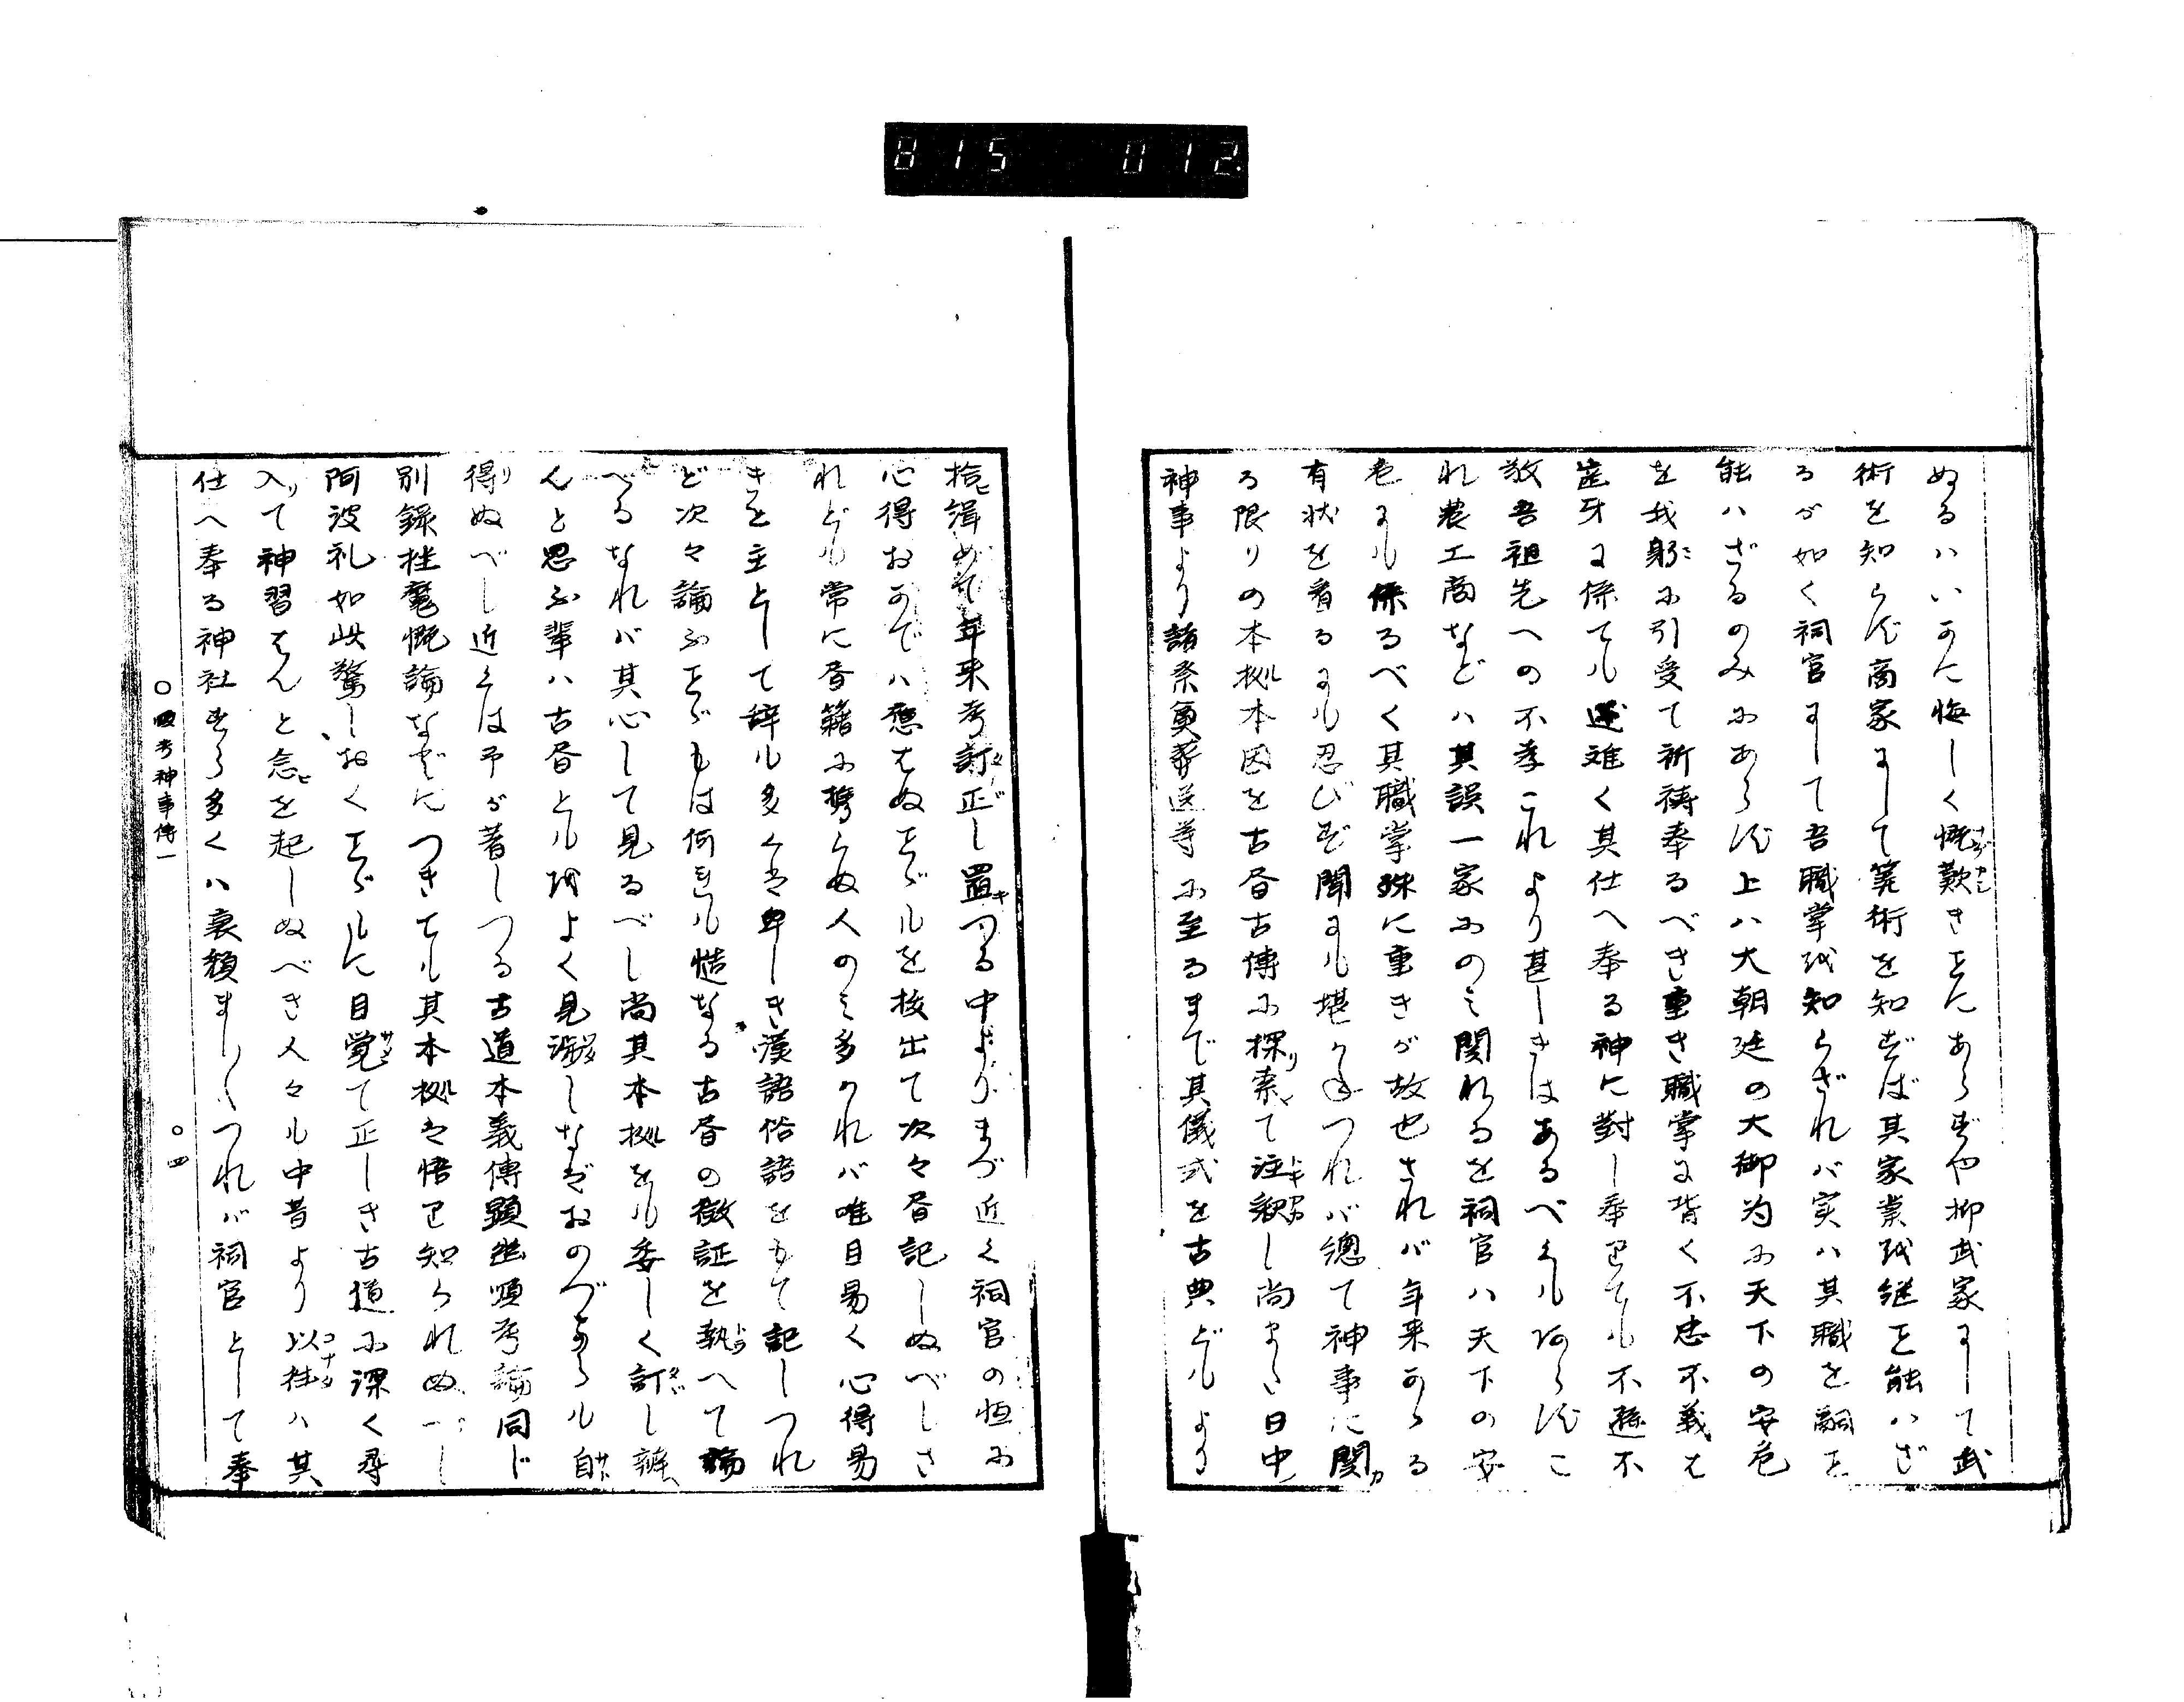 815 012
ぬるハいかに悔しく慨歎きことにあらずや抑武家にして武
術を知らず商家にして算術を知ずば其家業を継こと能ハざ
るが如く祠官にして吾職掌を知らざれバ実ハ其職を嗣こと
能ハざるのみにあらず上ハ大朝廷の大御為に天下の安危
を我躬に引受て祈祷奉るべき重き職掌に背く不忠不義は
歯牙に係ても遁難く其仕へ奉る神に對し奉りても不遜不
敬吾祖先への不孝これより甚しきはあるべくもあらずこ
れ農工商などハ其誤一家にのミ関れるを祠官ハ天下の安
危にも係るべく其職掌殊に重きが故也されバ年来かゝる
有状を看るにも忍びず聞にも堪かねつれバ總て神事に関
る限りの本拠本因を古書古傳に探索て注釈し尚また日中
神事より諸祭奠葬送等に至るまで其儀式を古典どもより
拾緝めて年来考訂正し置つる中よりまづ近く祠官の恒に
心得おかでハ應はぬことゞもを抜出て次々書記しぬべしさ
れども常に書籍に携らぬ人のミ多かれバ唯目易く心得易
きを主として辞も多くは卑しき漢語俗語をもて記しつれ
ど次々論ふことゞもは何れも慥なる古書の徴証を執へて論
べるなれバ其心して見るべし尚其本拠をも委しく訂し辨へ
んと思ふ輩ハ古書ともをよく見渉しなばおのづからも自
得ぬべし近くは予が著しつる古道本義傳顕幽順考論同じ
別録挫魔慨論などにつきても其本拠は悟り知られぬべし
阿波礼如此驚しおくことゞもに目覚て正しき古道に深く尋
入て神習はんと念を起しぬべき人々も中昔より以往ハ其
仕へ奉る神社すら多くハ衰頽ましましつれバ祠官として奉
○四考神事傳一
○四